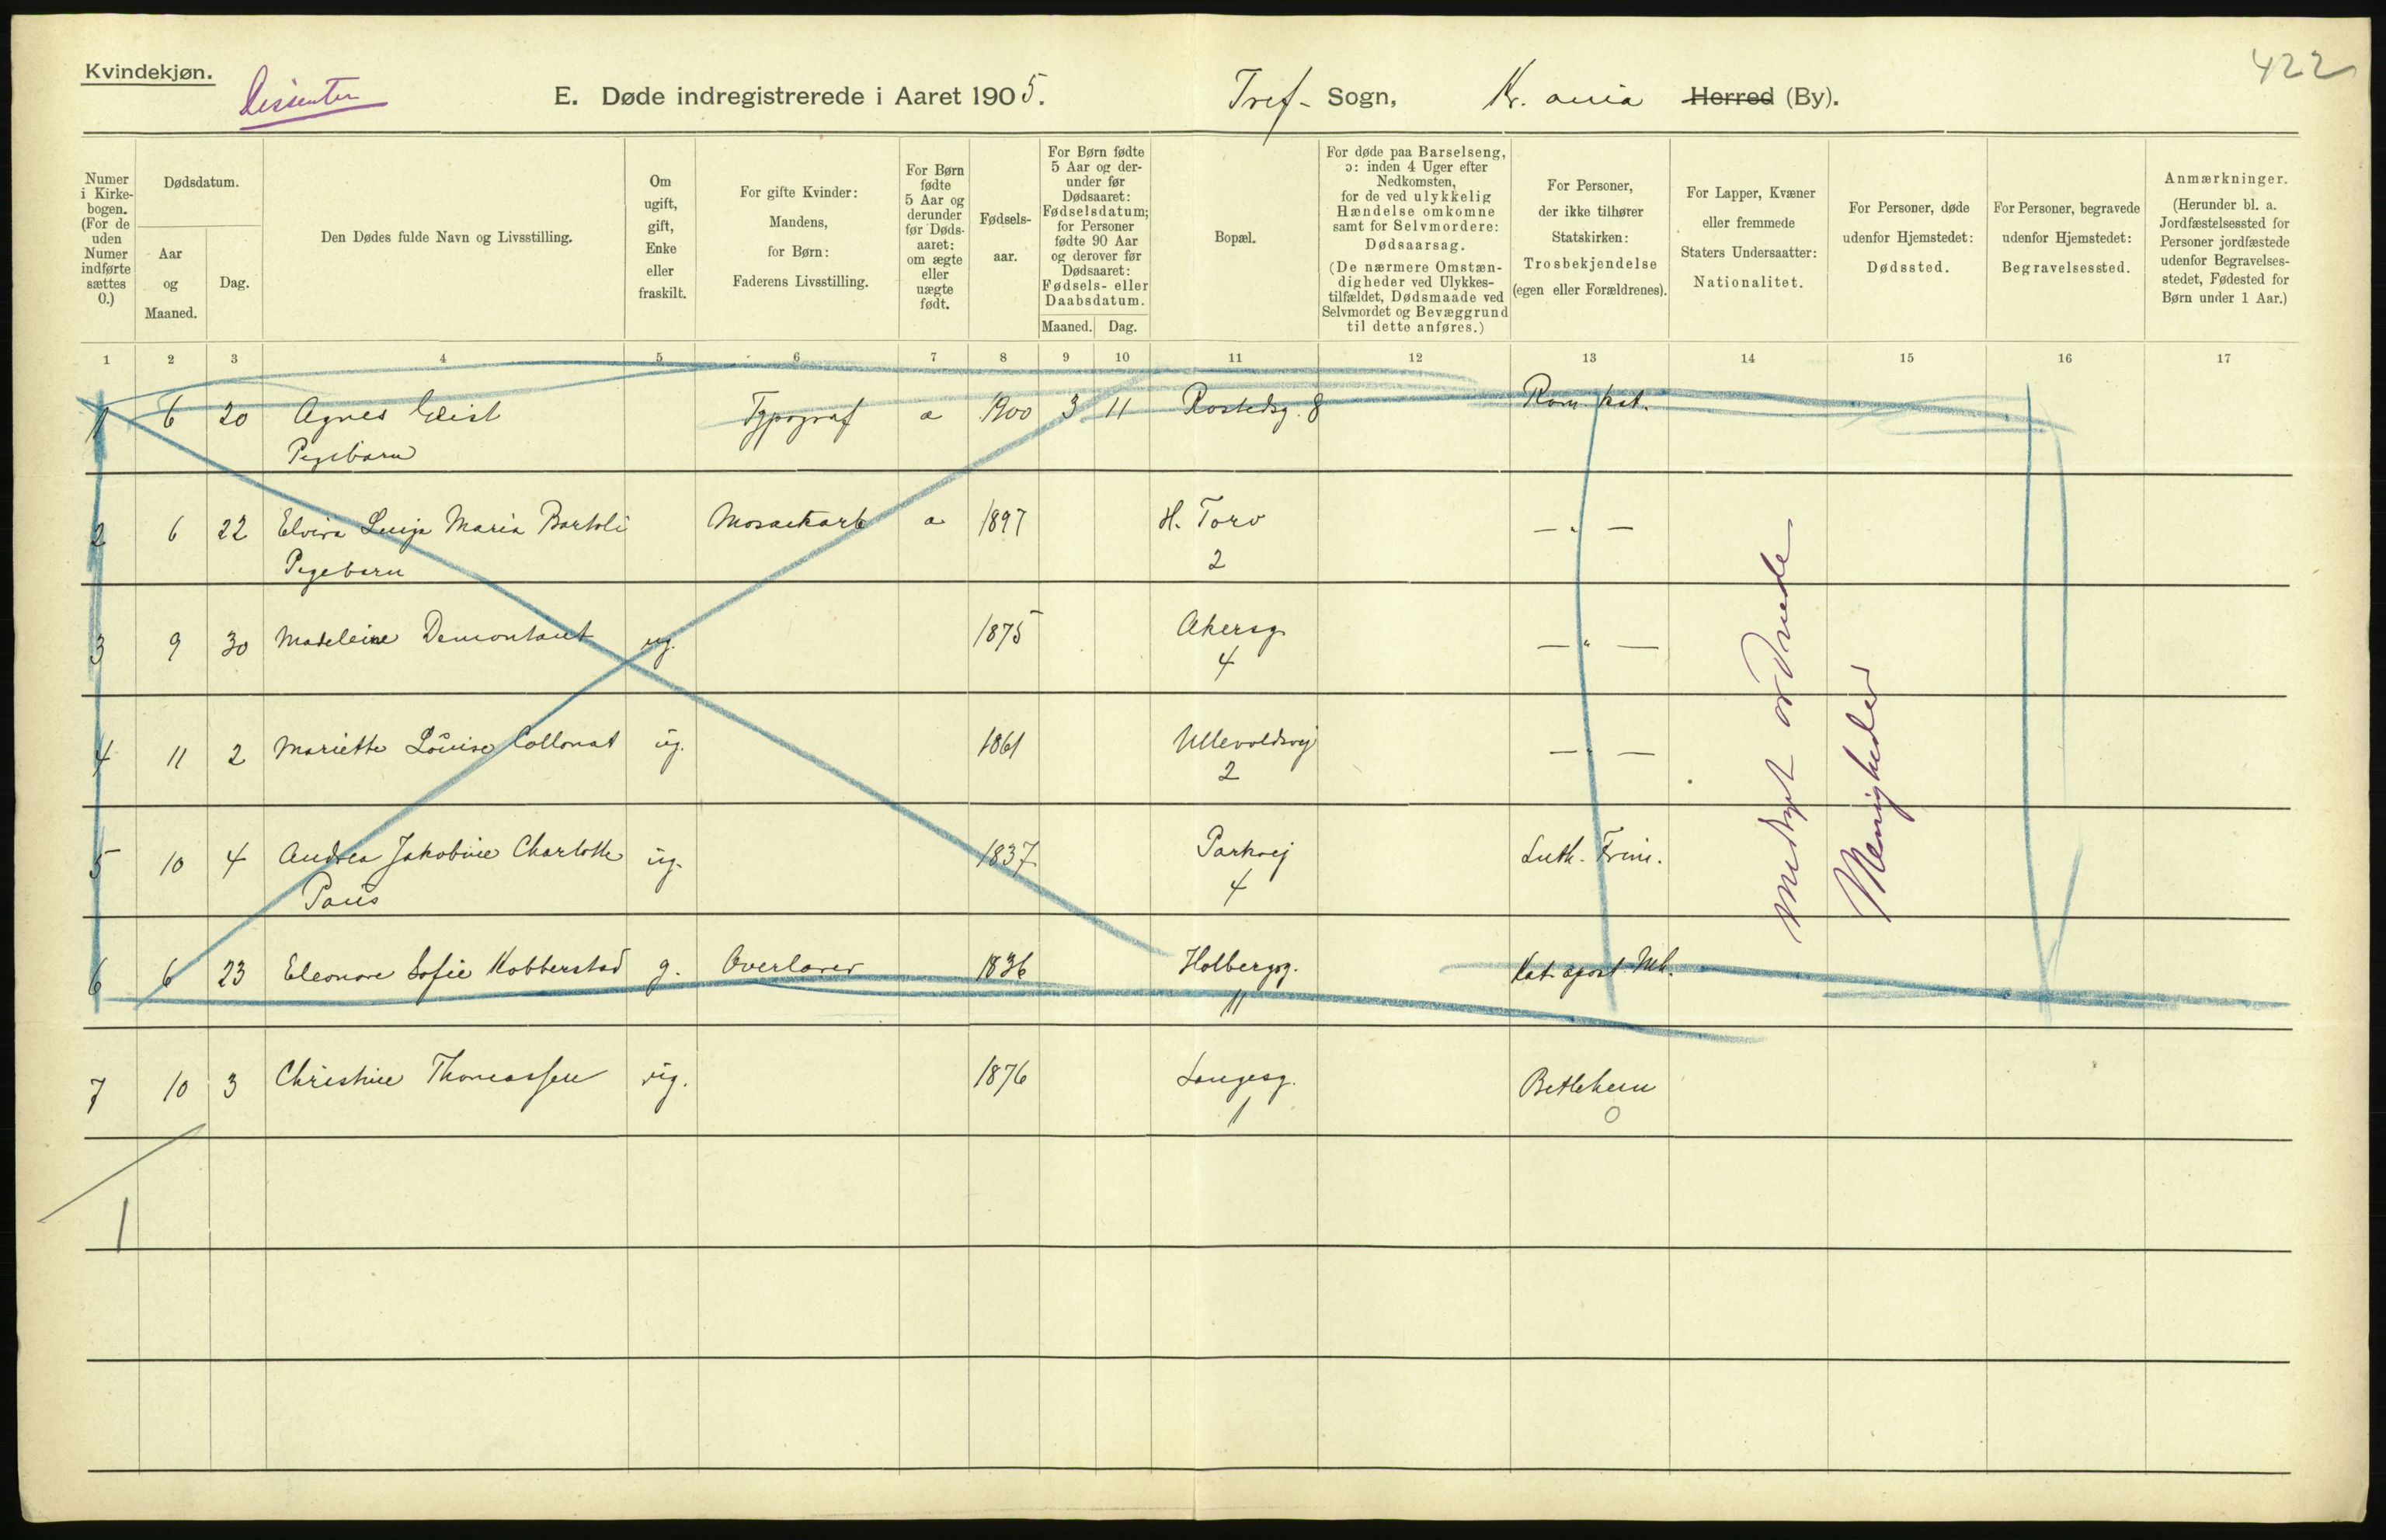 Kvindekjøn.
Dissenter
E. Døde indregistrerede i Aaret 1905.
Tref- Sogn, Kr. ania Herred (By).
422
Numer i Kirkebogen. (For de uden Numer indførte sættes 0.)
Dødsdatum.
Aar og Maaned.
Dag.
Den Dødes fulde Navn og Livsstilling.
Om ugift, gift, Enke eller fraskilt.
For gifte Kvinder: Mandens, for Børn: Faderens Livsstilling.
For Børn fødte 5 Aar og derunder før Dødsaaret: om ægte eller uægte født.
Fødselsaar.
For Børn fødte 5 Aar og derunder før Dødsaaret: Fødselsdatum; for Personer fødte 90 Aar og derover før Dødsaaret: Fødsels- eller Daabsdatum.
Maaned. Dag.
Bopæl.
For døde paa Barselseng, ɔ: inden 4 Uger efter Nedkomsten, for de ved ulykkelig Hændelse omkomne samt for Selvmordere: Dødsaarsag. (De nærmere Omstændigheder ved Ulykkestilfældet, Dødsmaade ved Selvmordet og Bevæggrund til dette anføres.)
For Personer, der ikke tilhører Statskirken: Trosbekjendelse (egen eller Forældrenes).
For Lapper, Kvæner eller fremmede Staters Undersaatter: Nationalitet.
For Personer, døde udenfor Hjemstedet: Dødssted.
For Personer, begravede udenfor Hjemstedet: Begravelsessted.
Anmærkninger. (Herunder bl. a. Jordfæstelsessted for Personer jordfæstede udenfor Begravelsesstedet, Fødested for Børn under 1 Aar.)
1 2 3 4 5 6 7 8 9 10 11 12 13 14 15 16 17
1 6 20 Agnes Geist Typograf a 1900 3 11 Rostedsg. 8 Rom kat.
Pigebarn
2 6 22 Elvira Luiga Maria Bartoli Mosaikarb a 1897 H. Torv — " —
Pigebarn 2
3 9 30 Madeleine Demontant ug. 1875 Akersg — " —
4
4 11 2 Mariette Louise Collonat ug. 1861 Ullevoldsvej — " —
2
5 10 4 Andrea Jakobine Charlotte ug. 1837 Parkvej Luth. Frim.
Paus 4
6 6 23 Eleonore Sofie Kobberstad g. Overlærer 1836 Holbergsg. Kat. apost. Mh.
11
7 10 3 Christine Thomassen ug. 1876 Langesg. Betlehem
1 0
1
Menigheder